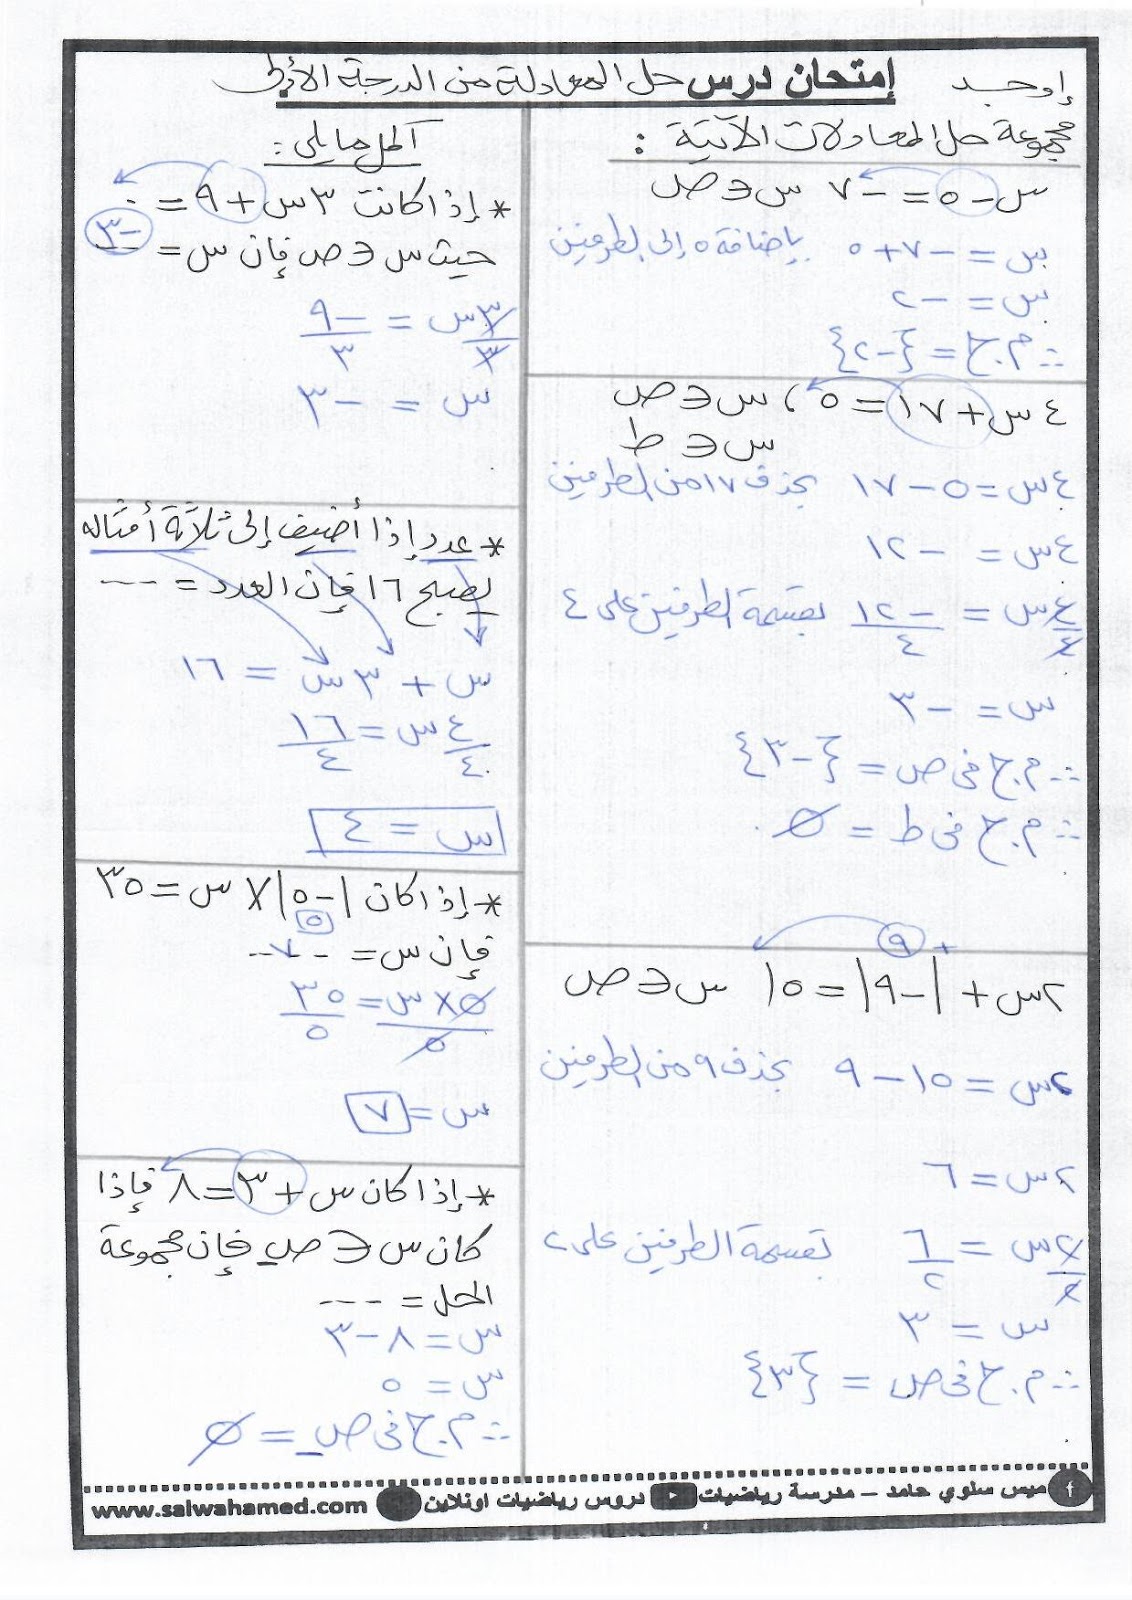 إمتحان درس حل المعادلة من الدرجة الأولى
إوجد
مجموعة حل المعادلات الآتية :
س - ٥ = - ٧ س ∈ ص
س = - ٧ + ٥ بإضافة ٥ إلى الطرفين
س = - ٢
∴ م.ح = {- ٢}
٤ س + ١٧ = ٥ ، س ∈ ص
س ∈ ط
٤ س = ٥ - ١٧ بحذف ١٧ من الطرفين
٤ س = - ١٢
٤س/٤ = - ١٢/٤ بقسمة الطرفين على ٤
س = - ٣
∴ م.ح فى ص = {- ٣}
∴ م.ح فى ط = ∅
+ ٩
٢س + |- ٩| = ١٥ س ∈ ص
٢س = ١٥ - ٩ بحذف ٩ من الطرفين
٢س = ٦
٢س/٢ = ٦/٢ بقسمة الطرفين على ٢
س = ٣
∴ م.ح فى ص = {٣}
أكمل ما يلى :
* إذا كانت ٣ س + ٩ = ٠
حيث س ∈ ص فإن س = - ٣ ---
٣س/٣ = - ٩/٣
س = - ٣
* عدد إذا أضيف إلى ثلاثة أمثاله
يصبح ١٦ فإن العدد = ---
س + ٣ س = ١٦
٤س/٤ = ١٦/٤
س = ٤
* إذا كان |- ٥| × س = ٣٥
٥
فإن س = - ٧ --
٥ × س/٥ = ٣٥/٥
س = ٧
* إذا كان س + ٣ = ٨ فإذا
كان س ∈ ص_ فإن مجموعة
الحل = ---
س = ٨ - ٣
س = ٥
∴ م.ح فى ص_ = ∅
ميس سلوي حامد - مدرسة رياضيات دروس رياضيات اونلاين www.salwahamed.com